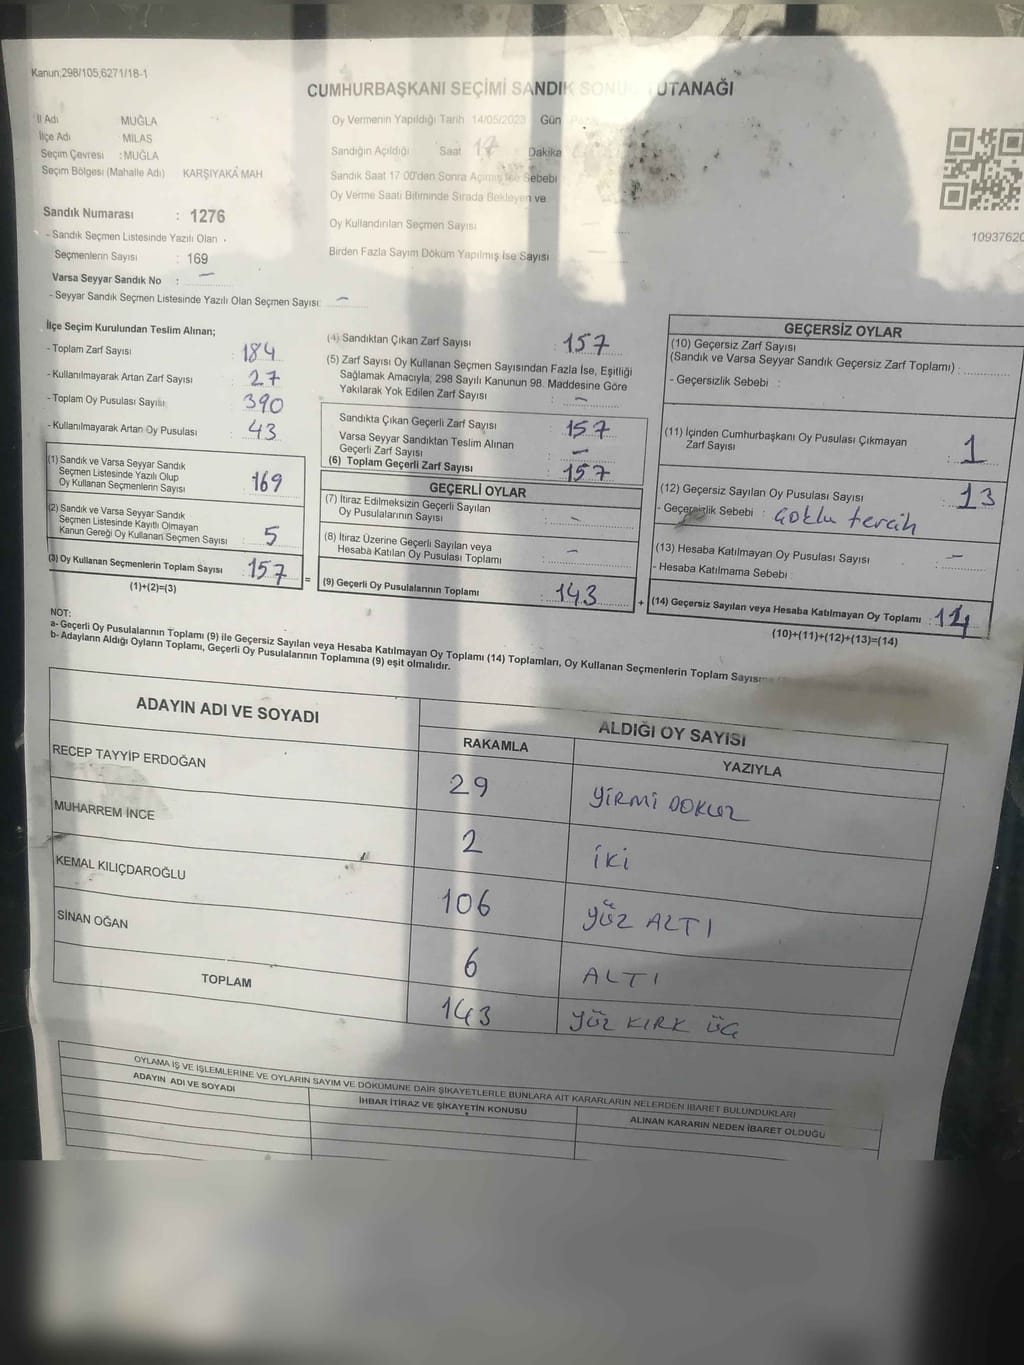 Kanun;298/105,6271/18-1
CUMHURBAŞKANI SEÇİMİ SANDIK SONUÇ TUTANAĞI
İl Adı MUĞLA
İlçe Adı MİLAS
Seçim Çevresi : MUĞLA
Seçim Bölgesi (Mahalle Adı) KARŞIYAKA MAH
Sandık Numarası : 1276
- Sandık Seçmen Listesinde Yazılı Olan
Seçmenlerin Sayısı : 169
Varsa Seyyar Sandık No : —
- Seyyar Sandık Seçmen Listesinde Yazılı Olan Seçmen Sayısı: —
Oy Vermenin Yapıldığı Tarih 14/05/2023 Gün
Sandığın Açıldığı Saat 17 Dakika
Sandık Saat 17:00'den Sonra Açılmış İse Sebebi
Oy Verme Saati Bitiminde Sırada Bekleyen ve
Oy Kullandırılan Seçmen Sayısı
Birden Fazla Sayım Döküm Yapılmış İse Sayısı
1093762
İlçe Seçim Kurulundan Teslim Alınan;
- Toplam Zarf Sayısı : 184
- Kullanılmayarak Artan Zarf Sayısı : 27
- Toplam Oy Pusulası Sayısı : 390
- Kullanılmayarak Artan Oy Pusulası : 43
(1) Sandık ve Varsa Seyyar Sandık
Seçmen Listesinde Yazılı Olup
Oy Kullanan Seçmenlerin Sayısı : 169
(2) Sandık ve Varsa Seyyar Sandık
Seçmen Listesinde Kayıtlı Olmayan
Kanun Gereği Oy Kullanan Seçmen Sayısı : 5
(3) Oy Kullanan Seçmenlerin Toplam Sayısı : 157
(1)+(2)=(3)
=
(4) Sandıktan Çıkan Zarf Sayısı : 157
(5) Zarf Sayısı Oy Kullanan Seçmen Sayısından Fazla İse, Eşitliği
Sağlamak Amacıyla, 298 Sayılı Kanunun 98. Maddesine Göre
Yakılarak Yok Edilen Zarf Sayısı : —
Sandıkta Çıkan Geçerli Zarf Sayısı : 157
Varsa Seyyar Sandıktan Teslim Alınan
Geçerli Zarf Sayısı : —
(6) Toplam Geçerli Zarf Sayısı : 157
GEÇERLİ OYLAR
(7) İtiraz Edilmeksizin Geçerli Sayılan
Oy Pusulalarının Sayısı : —
(8) İtiraz Üzerine Geçerli Sayılan veya
Hesaba Katılan Oy Pusulası Toplamı : —
(9) Geçerli Oy Pusulalarının Toplamı : 143
+
GEÇERSİZ OYLAR
(10) Geçersiz Zarf Sayısı
(Sandık ve Varsa Seyyar Sandık Geçersiz Zarf Toplamı) :
- Geçersizlik Sebebi :
(11) İçinden Cumhurbaşkanı Oy Pusulası Çıkmayan
Zarf Sayısı : 1
(12) Geçersiz Sayılan Oy Pusulası Sayısı : 13
- Geçersizlik Sebebi : çoklu tercih
(13) Hesaba Katılmayan Oy Pusulası Sayısı : —
- Hesaba Katılmama Sebebi :
(14) Geçersiz Sayılan veya Hesaba Katılmayan Oy Toplamı : 14
(10)+(11)+(12)+(13)=(14)
NOT:
a- Geçerli Oy Pusulalarının Toplamı (9) ile Geçersiz Sayılan veya Hesaba Katılmayan Oy Toplamı (14) Toplamları, Oy Kullanan Seçmenlerin Toplam Sayısı
b- Adayların Aldığı Oyların Toplamı, Geçerli Oy Pusulalarının Toplamına (9) eşit olmalıdır.
ADAYIN ADI VE SOYADI ALDIĞI OY SAYISI
RAKAMLA YAZIYLA
RECEP TAYYİP ERDOĞAN 29 YİRMİ DOKUZ
MUHARREM İNCE 2 İKİ
KEMAL KILIÇDAROĞLU 106 YÜZ ALTI
SİNAN OĞAN 6 ALTI
TOPLAM 143 YÜZ KIRK ÜÇ
OYLAMA İŞ VE İŞLEMLERİNE VE OYLARIN SAYIM VE DÖKÜMÜNE DAİR ŞİKAYETLERLE BUNLARA AİT KARARLARIN NELERDEN İBARET BULUNDUKLARI
ADAYIN ADI VE SOYADI İHBAR İTİRAZ VE ŞİKAYETİN KONUSU ALINAN KARARIN NEDEN İBARET OLDUĞU